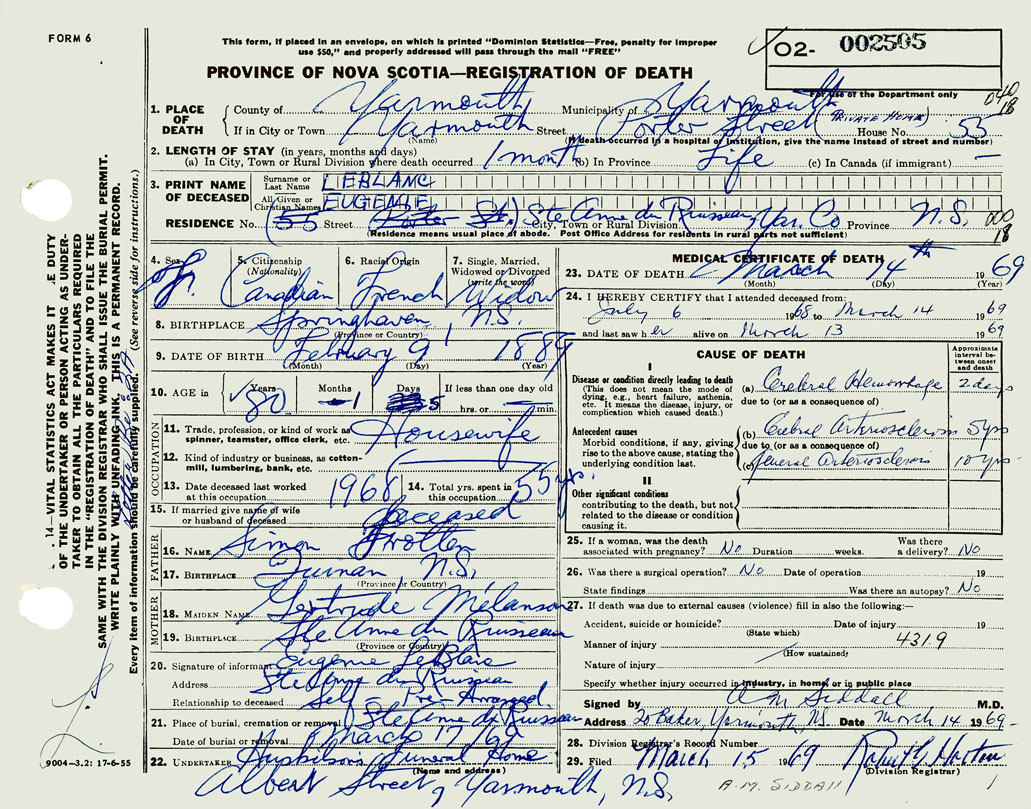 FORM 6
This form, if placed in an envelope, on which is printed "Dominion Statistics—Free, penalty for improper
use $50," and properly addressed will pass through the mail "FREE"
O2- 002505
For use of the Department only
PROVINCE OF NOVA SCOTIA—REGISTRATION OF DEATH
040
18
1. PLACE OF DEATH { County of Yarmouth Municipality of Yarmouth
If in City or Town Yarmouth Street Porter Street (PRIVATE HOME) House No. 55
(Name) (If death occurred in a hospital or institution, give the name instead of street and number)
2. LENGTH OF STAY (in years, months and days)
(a) In City, Town or Rural Division where death occurred 1 month (b) In Province Life (c) In Canada (if immigrant) —
3. PRINT NAME OF DECEASED { Surname or Last Name LEBLANC
All Given or Christian Names EUGENIE
RESIDENCE No. (55 Street (Porter St.) Ste Anne du Ruisseau City, Town or Rural Division Yar. Co Province N.S.
000
18
(Residence means usual place of abode. Post Office Address for residents in rural parts not sufficient)
4. Sex F. 5. Citizenship (Nationality) Canadian 6. Racial Origin French 7. Single, Married, Widowed or Divorced (write the word) Widow
8. BIRTHPLACE Springhaven, N.S.
(Province or Country)
9. DATE OF BIRTH February 9, 1889
(Month) (Day) (Year)
10. AGE in { Years 80 Months 1 Days 5 If less than one day old hrs. or min.
OCCUPATION
11. Trade, profession, or kind of work as spinner, teamster, office clerk, etc. Housewife
12. Kind of industry or business, as cotton-mill, lumbering, bank, etc.
13. Date deceased last worked at this occupation 1968 14. Total yrs. spent in this occupation 55 yrs.
15. If married give name of wife or husband of deceased deceased
FATHER
16. NAME Simon Frotten
17. BIRTHPLACE N.S.
(Province or Country)
MOTHER
18. MAIDEN NAME Gertrude Mélanson
19. BIRTHPLACE Ste Anne du Ruisseau
(Province or Country)
20. Signature of informant Eugenie LeBlanc
Address Ste Anne du Ruisseau
Relationship to deceased Self - Pre-Arranged
21. Place of burial, cremation or removal Ste Anne du Ruisseau
Date of burial or removal March 17/69
22. UNDERTAKER Huskilson's Funeral Home
(Name and address)
Albert Street, Yarmouth, N.S.
MEDICAL CERTIFICATE OF DEATH
23. DATE OF DEATH March 14th 1969
(Month) (Day) (Year)
24. I HEREBY CERTIFY that I attended deceased from:
July 6 1968 to March 14 1969
and last saw her alive on March 13 1969
CAUSE OF DEATH
Approximate interval between onset and death
I
Disease or condition directly leading to death
(This does not mean the mode of dying, e.g., heart failure, asthenia, etc. It means the disease, injury, or complication which caused death.)
(a) Cerebral Hemorrhage 2 days
due to (or as a consequence of)
Antecedent causes
Morbid conditions, if any, giving rise to the above cause, stating the underlying condition last.
(b) Cerebral Arteriosclerosis 5 yrs
due to (or as a consequence of)
(c) General Arteriosclerosis 10 yrs.
II
Other significant conditions
contributing to the death, but not related to the disease or condition causing it.
25. If a woman, was the death associated with pregnancy? No Duration weeks. Was there a delivery? No
26. Was there a surgical operation? No Date of operation 19
State findings Was there an autopsy? No
27. If death was due to external causes (violence) fill in also the following:—
Accident, suicide or homicide? Date of injury 19
(State which)
Manner of injury 4319
(How sustained)
Nature of injury
Specify whether injury occurred in industry, in home, or in public place
Signed by A M Siddall M.D.
Address 20 Baker, Yarmouth, N.S. Date March 14 1969
28. Division Registrar's Record Number
29. Filed March 15 1969 Robert G Horton
(Division Registrar)
A.M. SIDDALL
9004—3.2: 17-6-55
14—VITAL STATISTICS ACT MAKES IT E DUTY
OF THE UNDERTAKER OR PERSON ACTING AS UNDER-
TAKER TO OBTAIN ALL THE PARTICULARS REQUIRED
IN THE "REGISTRATION OF DEATH" AND TO FILE THE
SAME WITH THE DIVISION REGISTRAR WHO SHALL ISSUE THE BURIAL PERMIT.
WRITE PLAINLY WITH UNFADING INK. THIS IS A PERMANENT RECORD.
Every item of information should be carefully supplied. (See reverse side for instructions.)